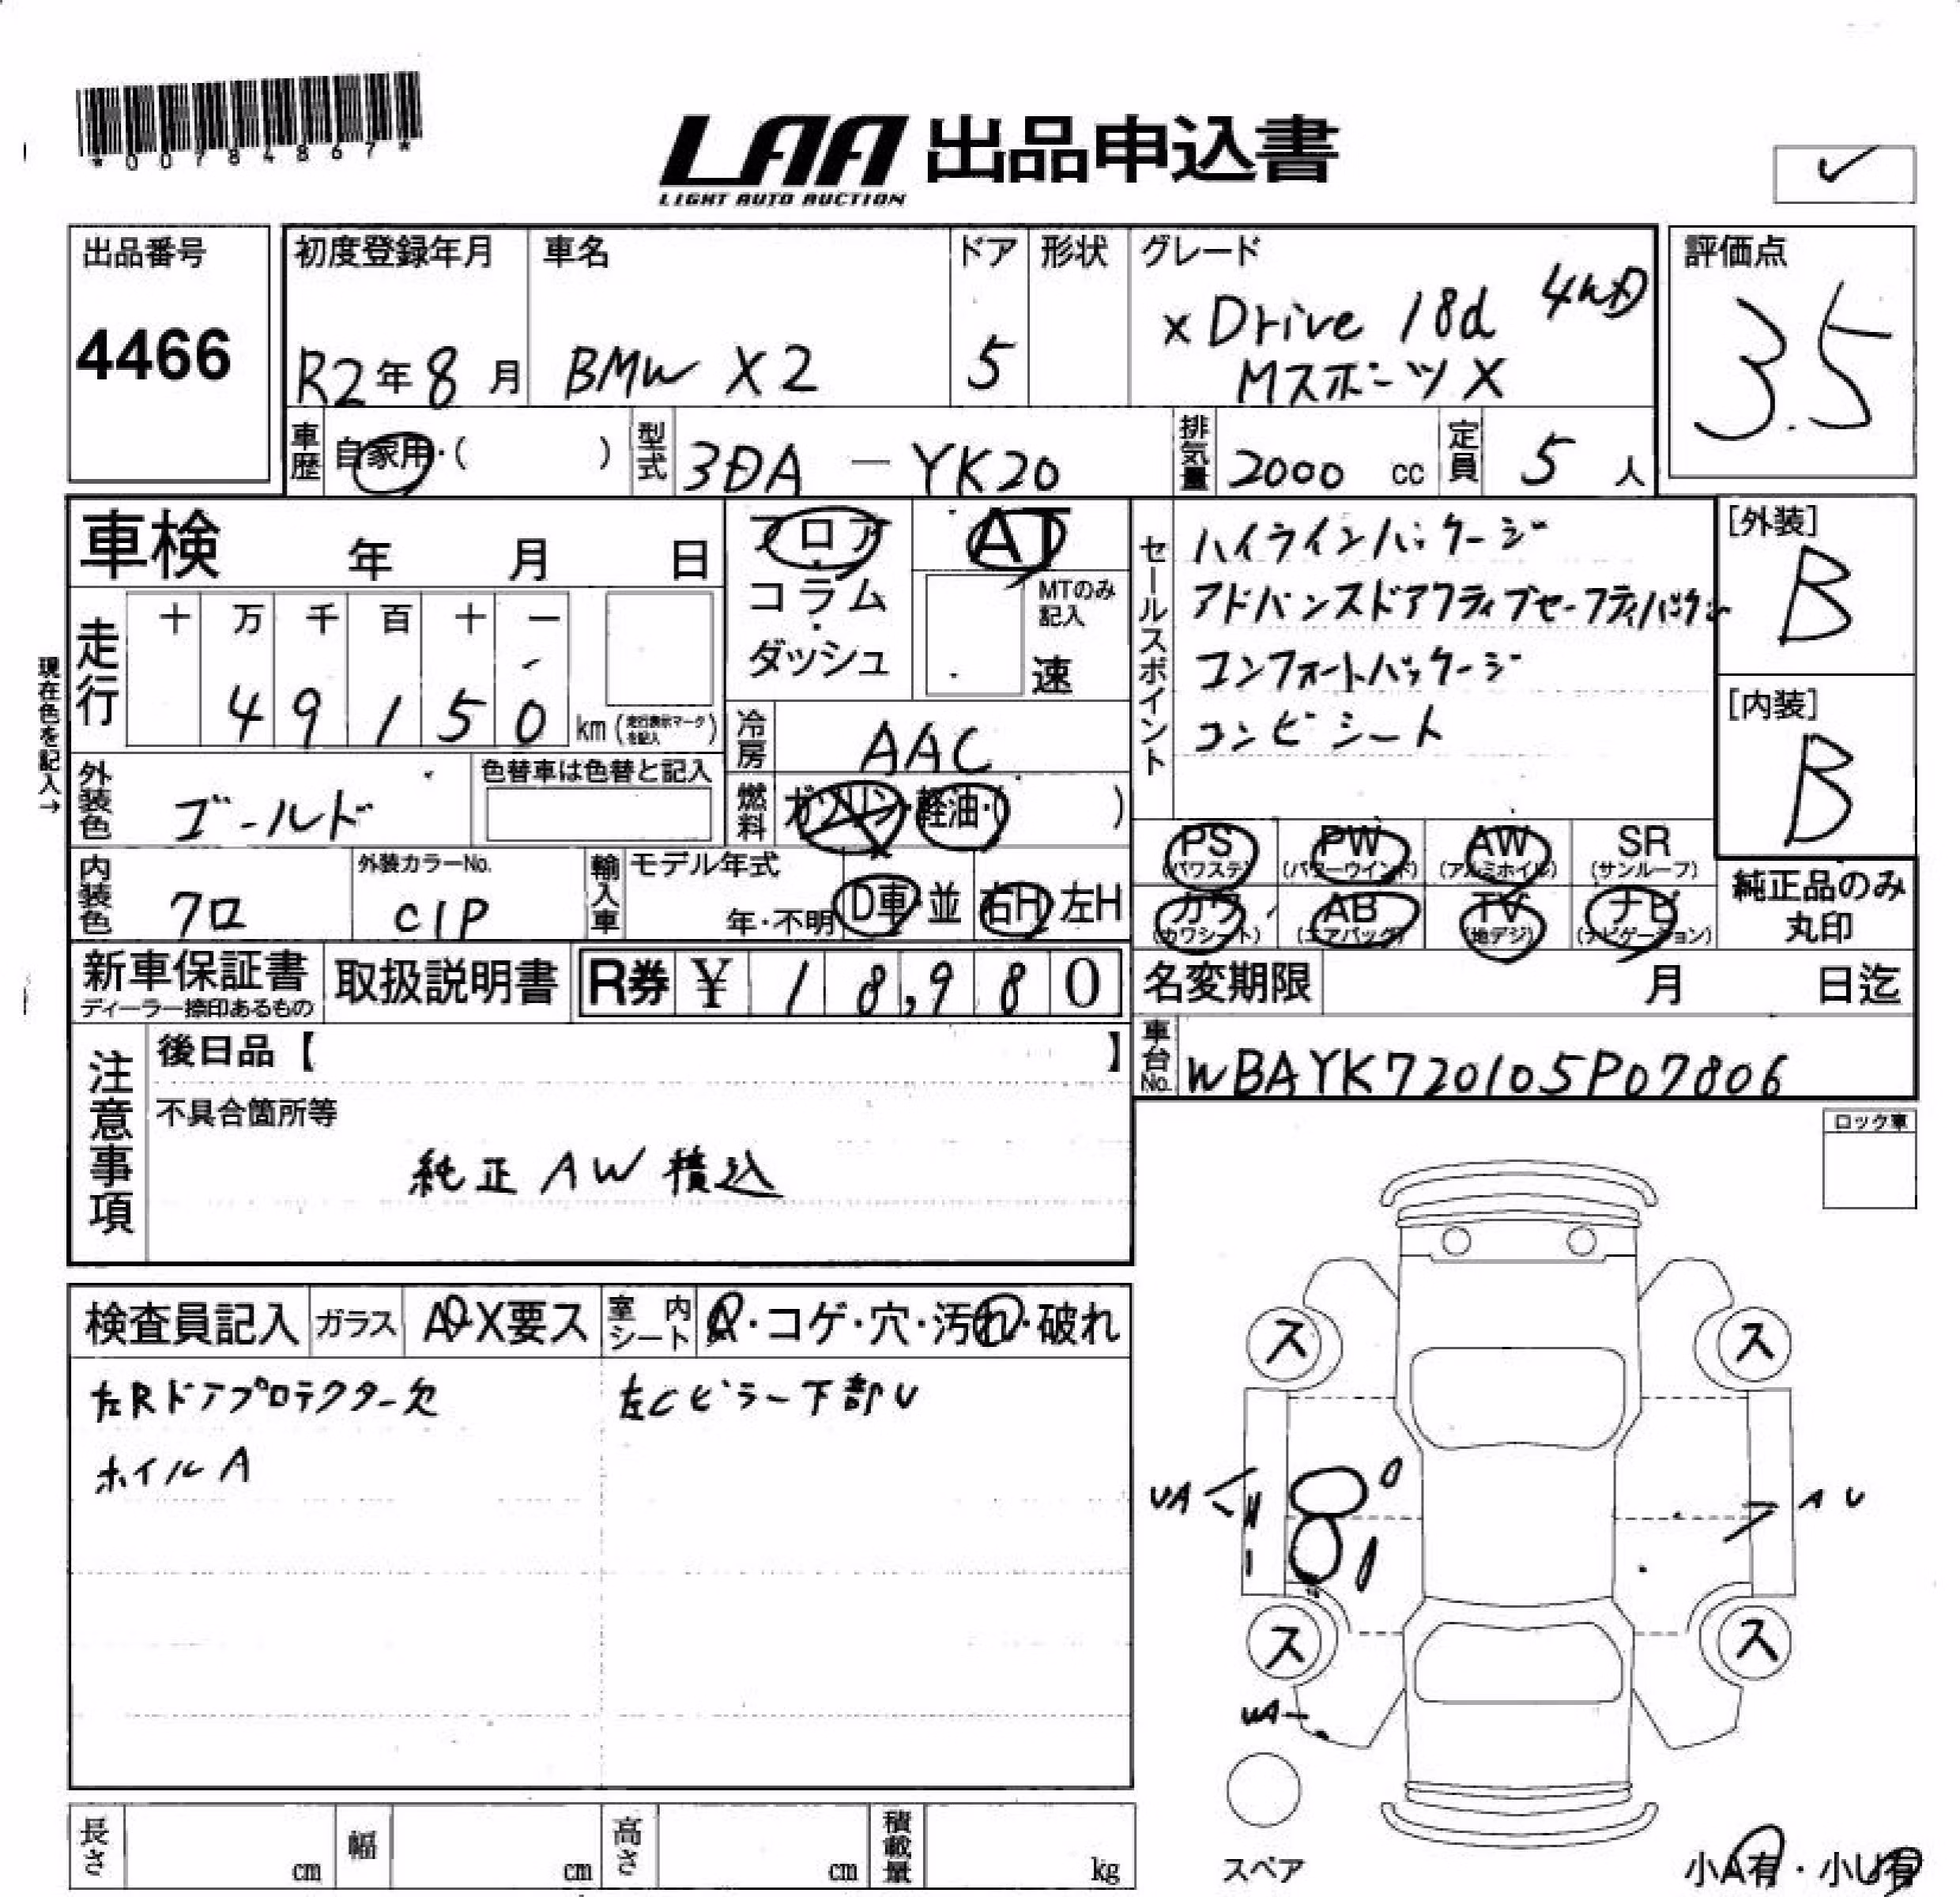 *00784867*
LAA 出品申込書
LIGHT AUTO AUCTION
出品番号
4466
初度登録年月
R2年8月
車名
BMW X2
ドア
5
形状
グレード
xDrive 18d 4WD
Mスポーツ X
評価点
3.5
車歴
自家用・( )
型式
3DA - YK20
排気量
2000 cc
定員
5 人
車検 年 月 日
走行
十 万 千 百 十 一
4 9 1 5 0 km (走行表示マークを記入)
現在色を記入→
フロア
コラム
・
ダッシュ
AT
MTのみ記入
速
冷房
AAC
燃料
ガソリン・軽油・( )
セールスポイント
ハイラインパッケージ
アドバンスドアクティブセーフティパッケージ
コンフォートパッケージ
コンビシート
[外装]
B
[内装]
B
外装色
ゴールド
色替車は色替と記入
内装色
クロ
外装カラーNo.
C1P
輸入車
モデル年式
年・不明
D車・並
右H 左H
PS
(パワステ)
PW
(パワーウインド)
AW
(アルミホイル)
SR
(サンルーフ)
カワ
(カワシート)
AB
(エアバッグ)
TV
(地デジ)
ナビ
(ナビゲーション)
純正品のみ
丸印
新車保証書
ディーラー捺印あるもの
取扱説明書
R券 ¥ 18,980
名変期限 月 日迄
車台No.
WBAYK720105P07806
注意事項
後日品【 】
不具合箇所等
純正 AW 積込
ロック車
検査員記入
ガラス
A・X要ス
室内シート
A・コゲ・穴・汚れ・破れ
左Rドアプロテクター欠
左Cピラー下部U
ホイルA
ス
ス
UA
A U
ス
ス
UA
スペア
小A有・小U有
長さ cm
幅 cm
高さ cm
積載量 kg